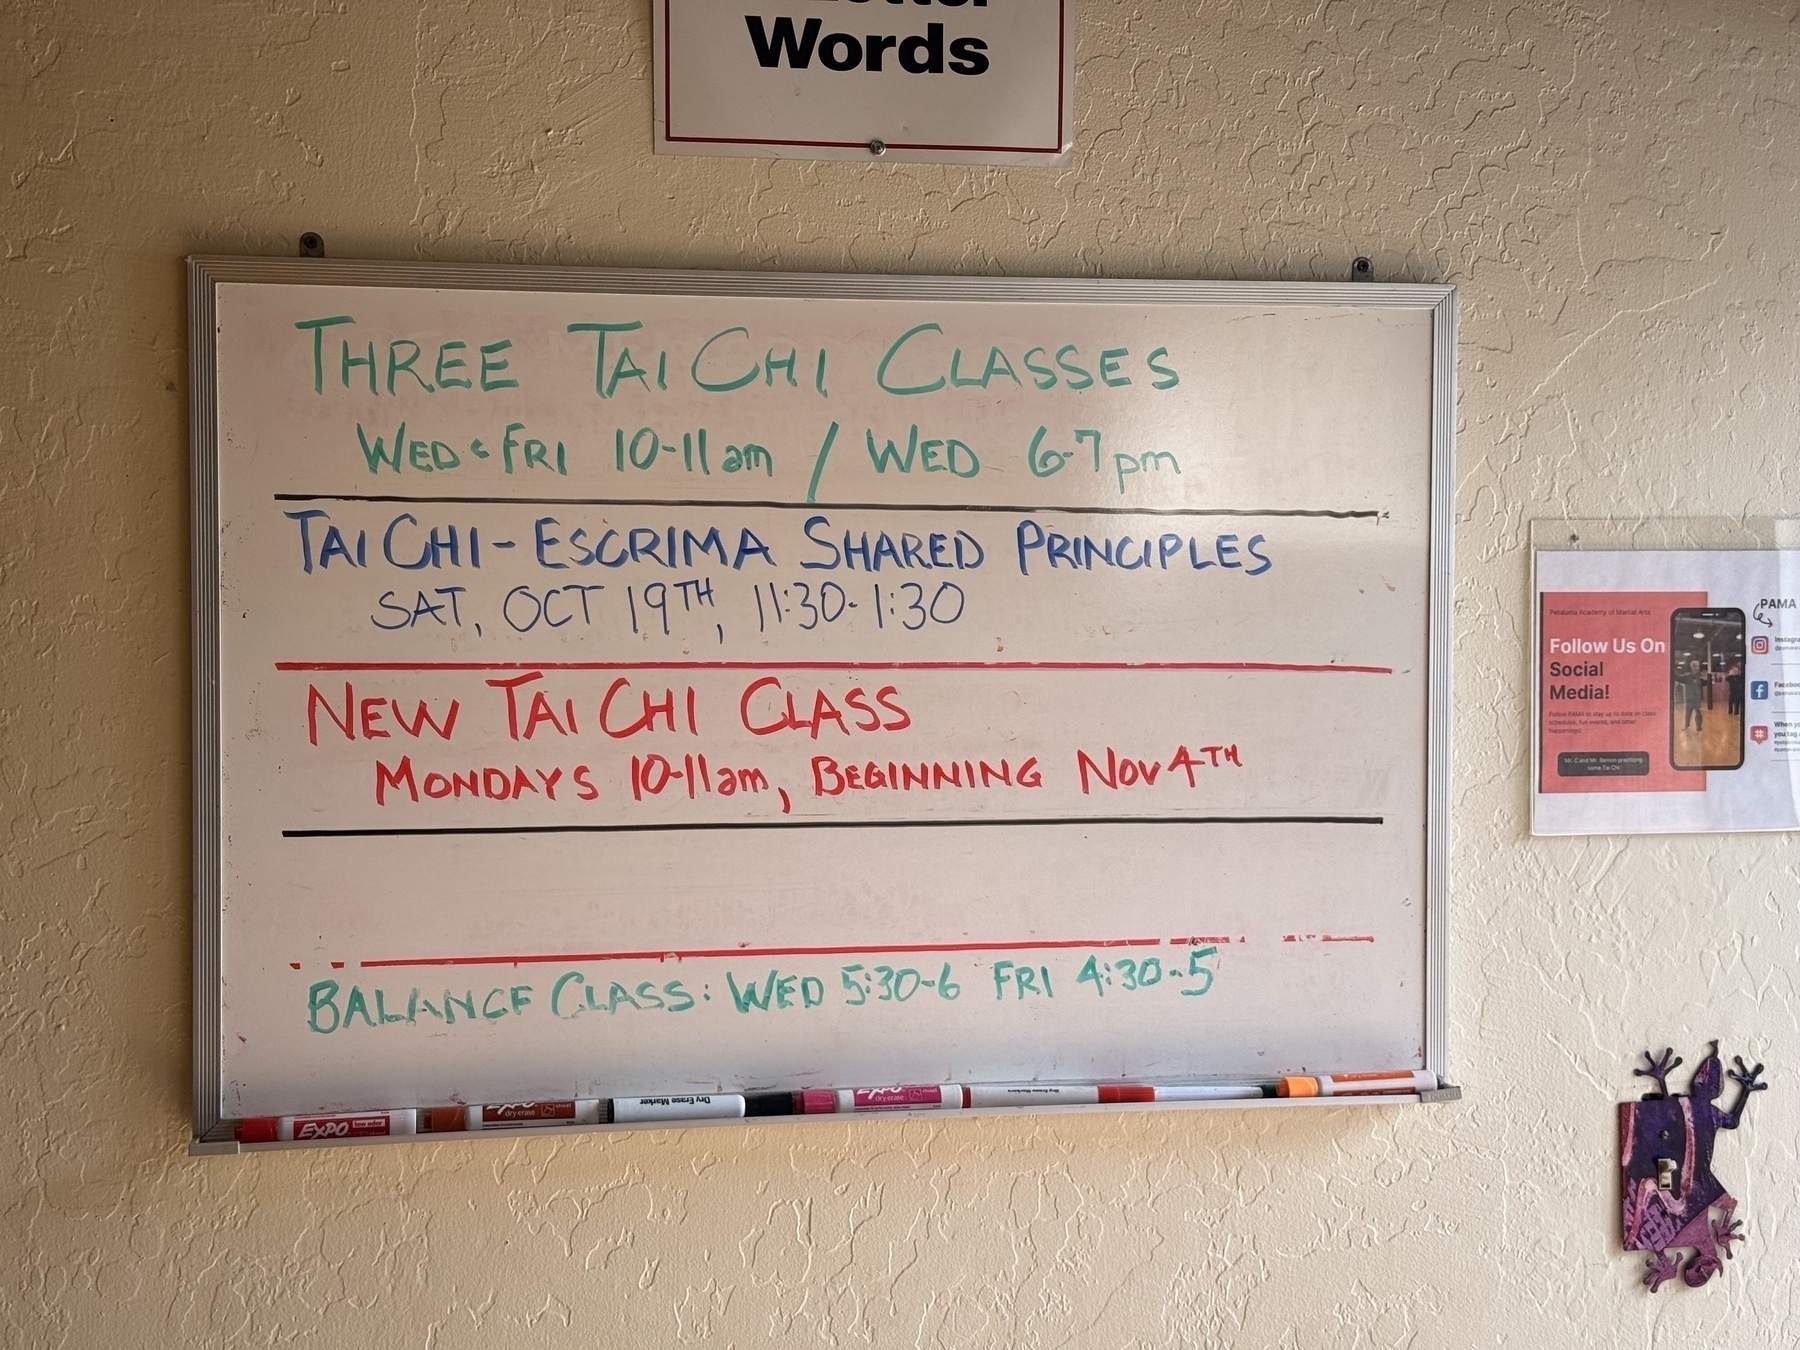 Words
THREE TAI CHI CLASSES
WED & FRI 10-11am / WED 6-7pm
TAI CHI - ESCRIMA SHARED PRINCIPLES
SAT, OCT 19TH, 11:30-1:30
NEW TAI CHI CLASS
MONDAYS 10-11am, BEGINNING NOV 4TH
BALANCE CLASS: WED 5:30-6 FRI 4:30-5
EXPO low odor
EXPO dry erase
Dry Erase Marker
EXPO dry erase
Dry Erase Markers
Petaluma Academy of Martial Arts
Follow Us On
Social
Media!
Follow PAMA to stay up to date on class
schedules, fun events, and other
happenings!
Mr. C and Mr. Benton practicing
some Tai Chi
PAMA
When yo
you tag